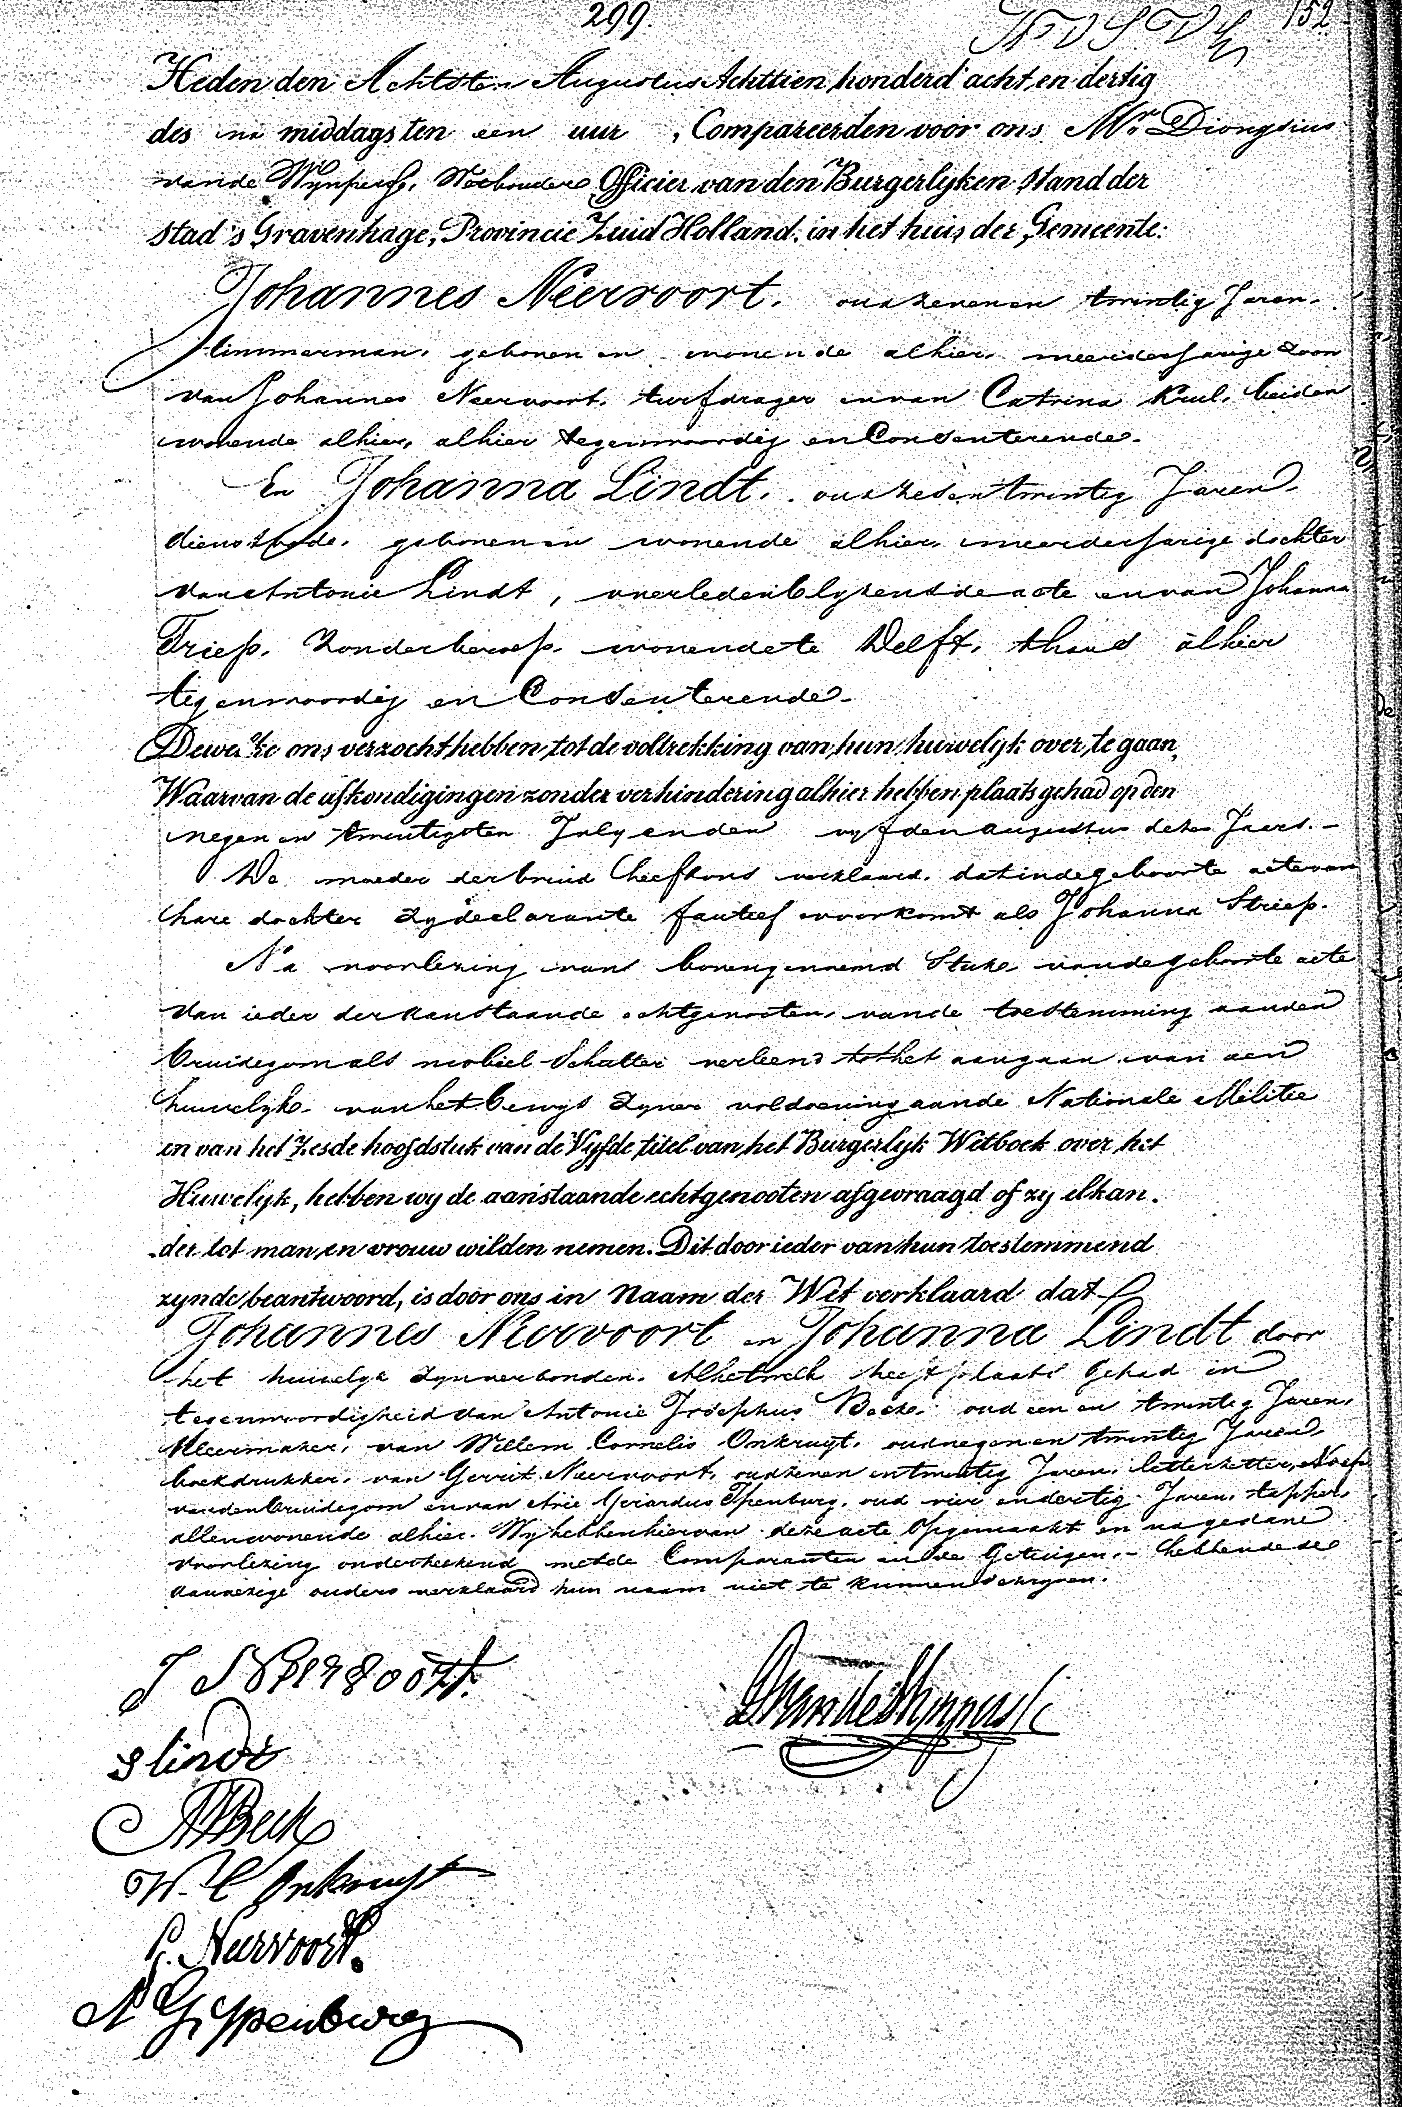 299.
152
Heden den Achtsten Augustus Achttien honderd acht en dertig
des na middags ten een uur, Compareerden voor ons Mr. Dionysius
van de Wynpersse, Wethouder Officier van den Burgerlyken Stand der
stad 's Gravenhage, Provincie Zuid Holland, in het huis der Gemeente:
Johannes Neervoort. oud zeven en twintig Jaren.
timmerman. geboren en wonende alhier. meerderjarige zoon
van Johannes Neervoort. turfdrager en van Catrina Krul. beiden
wonende alhier, alhier tegenwoordig en Consenterende.
En Johanna Lindt. oud zes en twintig Jaren
dienstbode. geboren en wonende alhier. meerderjarige dochter
van Antonie Lindt, overleden blykens de acte en van Johanna
Triep. zonder beroep. wonende te Delft. thans alhier
tegenwoordig en Consenterende.
Dewelke ons verzocht hebben tot de voltrekking van hun huwelyk over te gaan,
Waarvan de afkondigingen zonder verhindering alhier hebben plaats gehad op den
negen en twintigsten July en den vyfden augustus dezes Jaars.
De moeder der bruid heeft ons verklaard. dat in de geboorte acte van
hare dochter zy declarante foutief voorkomt als Johanna Striep.
Na voorlezing van bovengenoemd Stuk van de geboorte acte
van ieder der aanstaande echtgenooten, van de toestemming aan den
bruidegom als mobiel Schutter verleend tot het aangaan van een
huwelyk. van het bewys zyner voldoening aan de Nationale Militie
en van het Zesde hoofdstuk van de Vyfde titel van het Burgerlyk Wetboek over het
Huwelyk, hebben wy de aanstaande echtgenooten afgevraagd of zy elkan-
der tot man en vrouw wilden nemen. Dit door ieder van hun toestemmend
zynde beantwoord, is door ons in Naam der Wet verklaard dat
Johannes Neervoort en Johanna Lindt door
het huwelyk zyn verbonden. Al hetwelk heeft plaats gehad in
tegenwoordigheid van Antonie Josephus Beck. oud een en twintig Jaren,
kleermaker, van Willem Cornelis Onkruyt. oud negen en twintig Jaren,
boekdrukker, van Gerrit Neervoort, oud zeven en twintig Jaren, letterzetter, Neef
van den bruidegom en van Arie Gerardus Ypenburg. oud vier en dertig Jaren, tapper,
allen wonende alhier. Wy hebben hiervan deze acte opgemaakt en na gedane
voorlezing onderteekend met de Comparanten en de Getuigen.- hebbende de
aanwezige ouders verklaard hun naam niet te kunnen schryven.
J Neervoort.
D van de Wynpersse
J lindt
A J Beck
W. C Onkruyt
G. Neervoort.
A G Ypenburg